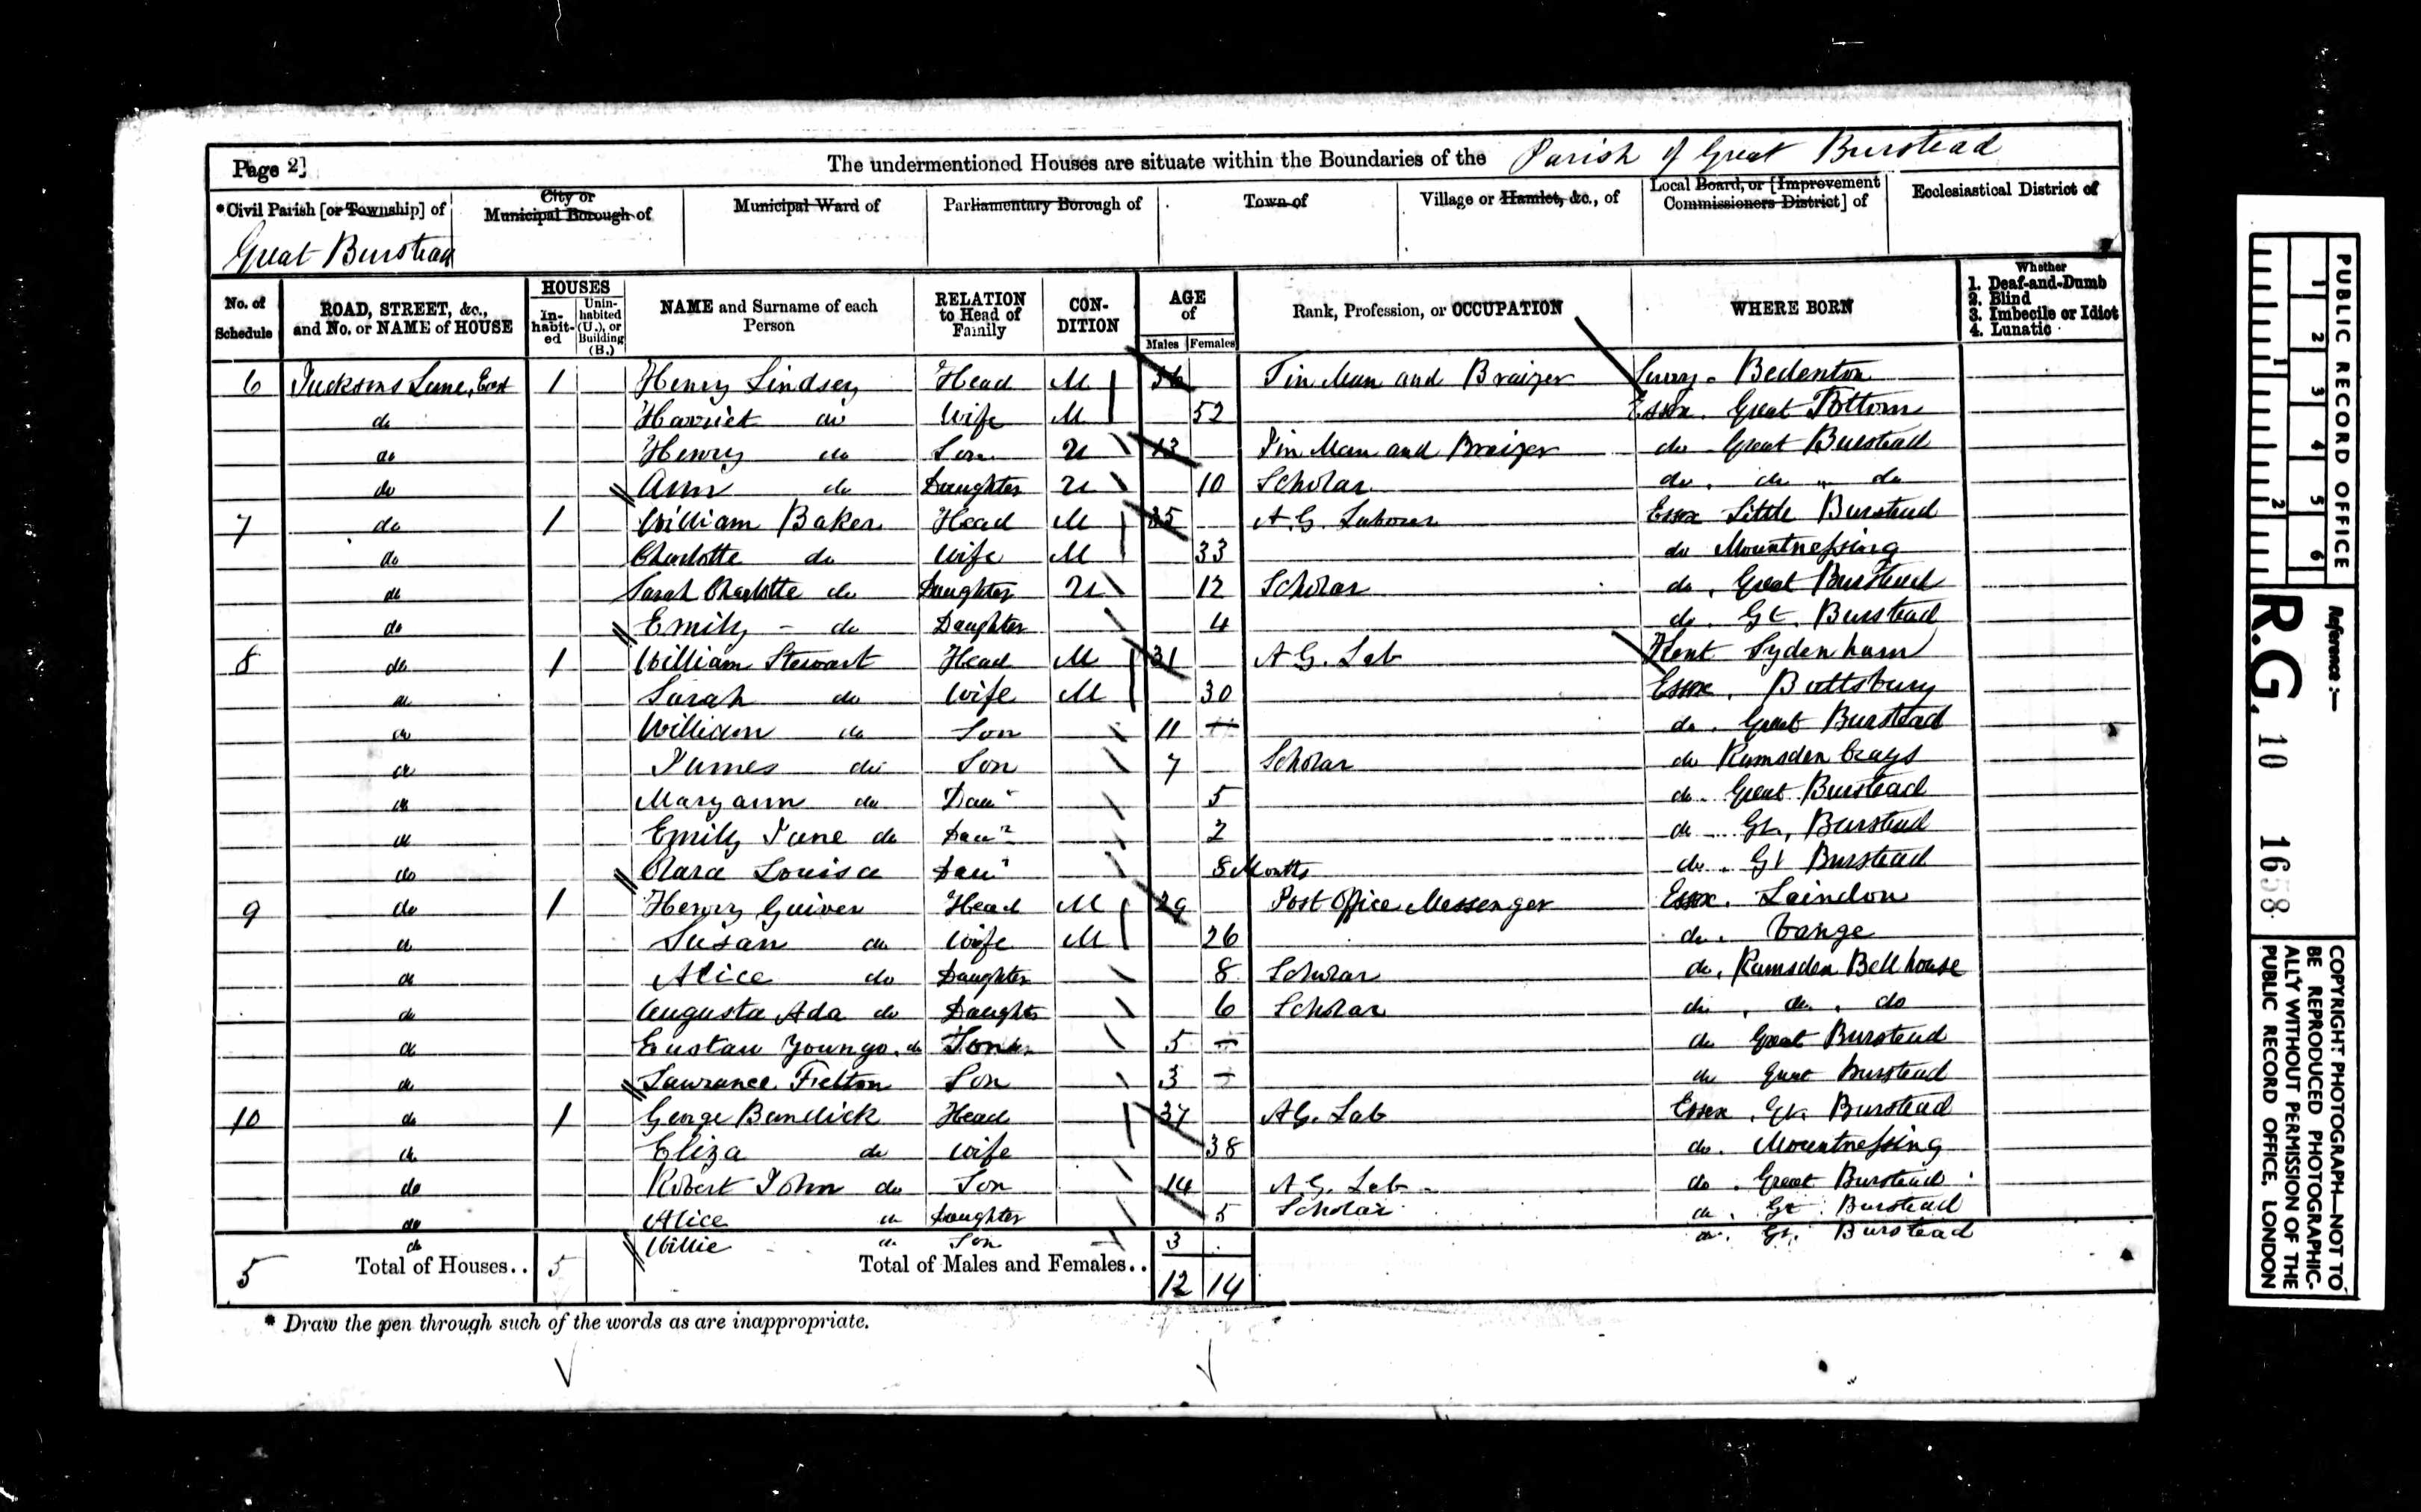 Page 2] The undermentioned Houses are situate within the Boundaries of the Parish of Great Burstead
*Civil Parish [or Township] of
Great Burstead
City or Municipal Borough of
Municipal Ward of
Parliamentary Borough of
Town of
Village or Hamlet, &c., of
Local Board, or [Improvement Commissioners District] of
Ecclesiastical District of
No. of Schedule
ROAD, STREET, &c., and No. or NAME of HOUSE
HOUSES
In-habit-ed
Unin-habited (U.), or Building (B.)
NAME and Surname of each Person
RELATION to Head of Family
CON-DITION
AGE of
Males Females
Rank, Profession, or OCCUPATION
WHERE BORN
Whether
1. Deaf-and-Dumb
2. Blind
3. Imbecile or Idiot
4. Lunatic
6 Jacksons Lane, East 1 Henry Lindsey Head M 56 Tin Man and Braizer Surry. Bedenton
do Harriet do Wife M 52 Essex. Great Tottom
do Henry do Son U 13 Tin Man and Braizer do Great Burstead
do Ann do Daughter U 10 Scholar do. do " do
7 do 1 William Baker Head M 35 A.G. Labourer Essex Little Burstead
do Charlotte do Wife M 33 do Mountnessing
do Sarah Charlotte do Daughter U 12 Scholar do. Great Burstead
do Emily - do Daughter 4 do. Gt. Burstead
8 do 1 William Stewart Head M 31 A G. Lab Kent Sydenham
do Sarah do Wife M 30 Essex. Buttsbury
do William do Son 11 do. Great Burstead
do James do Son 7 Scholar do Ramsden Crays
do Mary ann do Dau 5 do. Great Burstead
do Emily Jane do Daur 2 do Gt, Burstead
do Clara Louisa Daur 8 Months do. Gt Burstead
9 do 1 Henry Guiver Head M 29 Post Office Messenger Essex. Laindon
do Susan do Wife M 26 do. Vange
do Alice do Daughter 8 Scholar do, Ramsden Bellhouse
do Augusta Ada do Daughter 6 Scholar do, do. do
do do Son 5 do Great Burstead
do Lawrance Fielton Son 3 do Great Burstead
10 do 1 George Bundick Head 37 AG. Lab Essex. Gt. Burstead
do Eliza do Wife 38 do. Mountnessing
do Robert John do Son 14 A G. Lab do. Great Burstead
do Alice do Daughter 5 Scholar do. Gt. Burstead
do Willie do Son 3 do. Gt. Burstead
5 Total of Houses.. 5 Total of Males and Females.. 12 14
* Draw the pen through such of the words as are inappropriate.
PUBLIC RECORD OFFICE
1 2 3 4 5 6
1 2
Reference :—
R.G. 10 1658
COPYRIGHT PHOTOGRAPH—NOT TO
BE REPRODUCED PHOTOGRAPHIC-
ALLY WITHOUT PERMISSION OF THE
PUBLIC RECORD OFFICE, LONDON